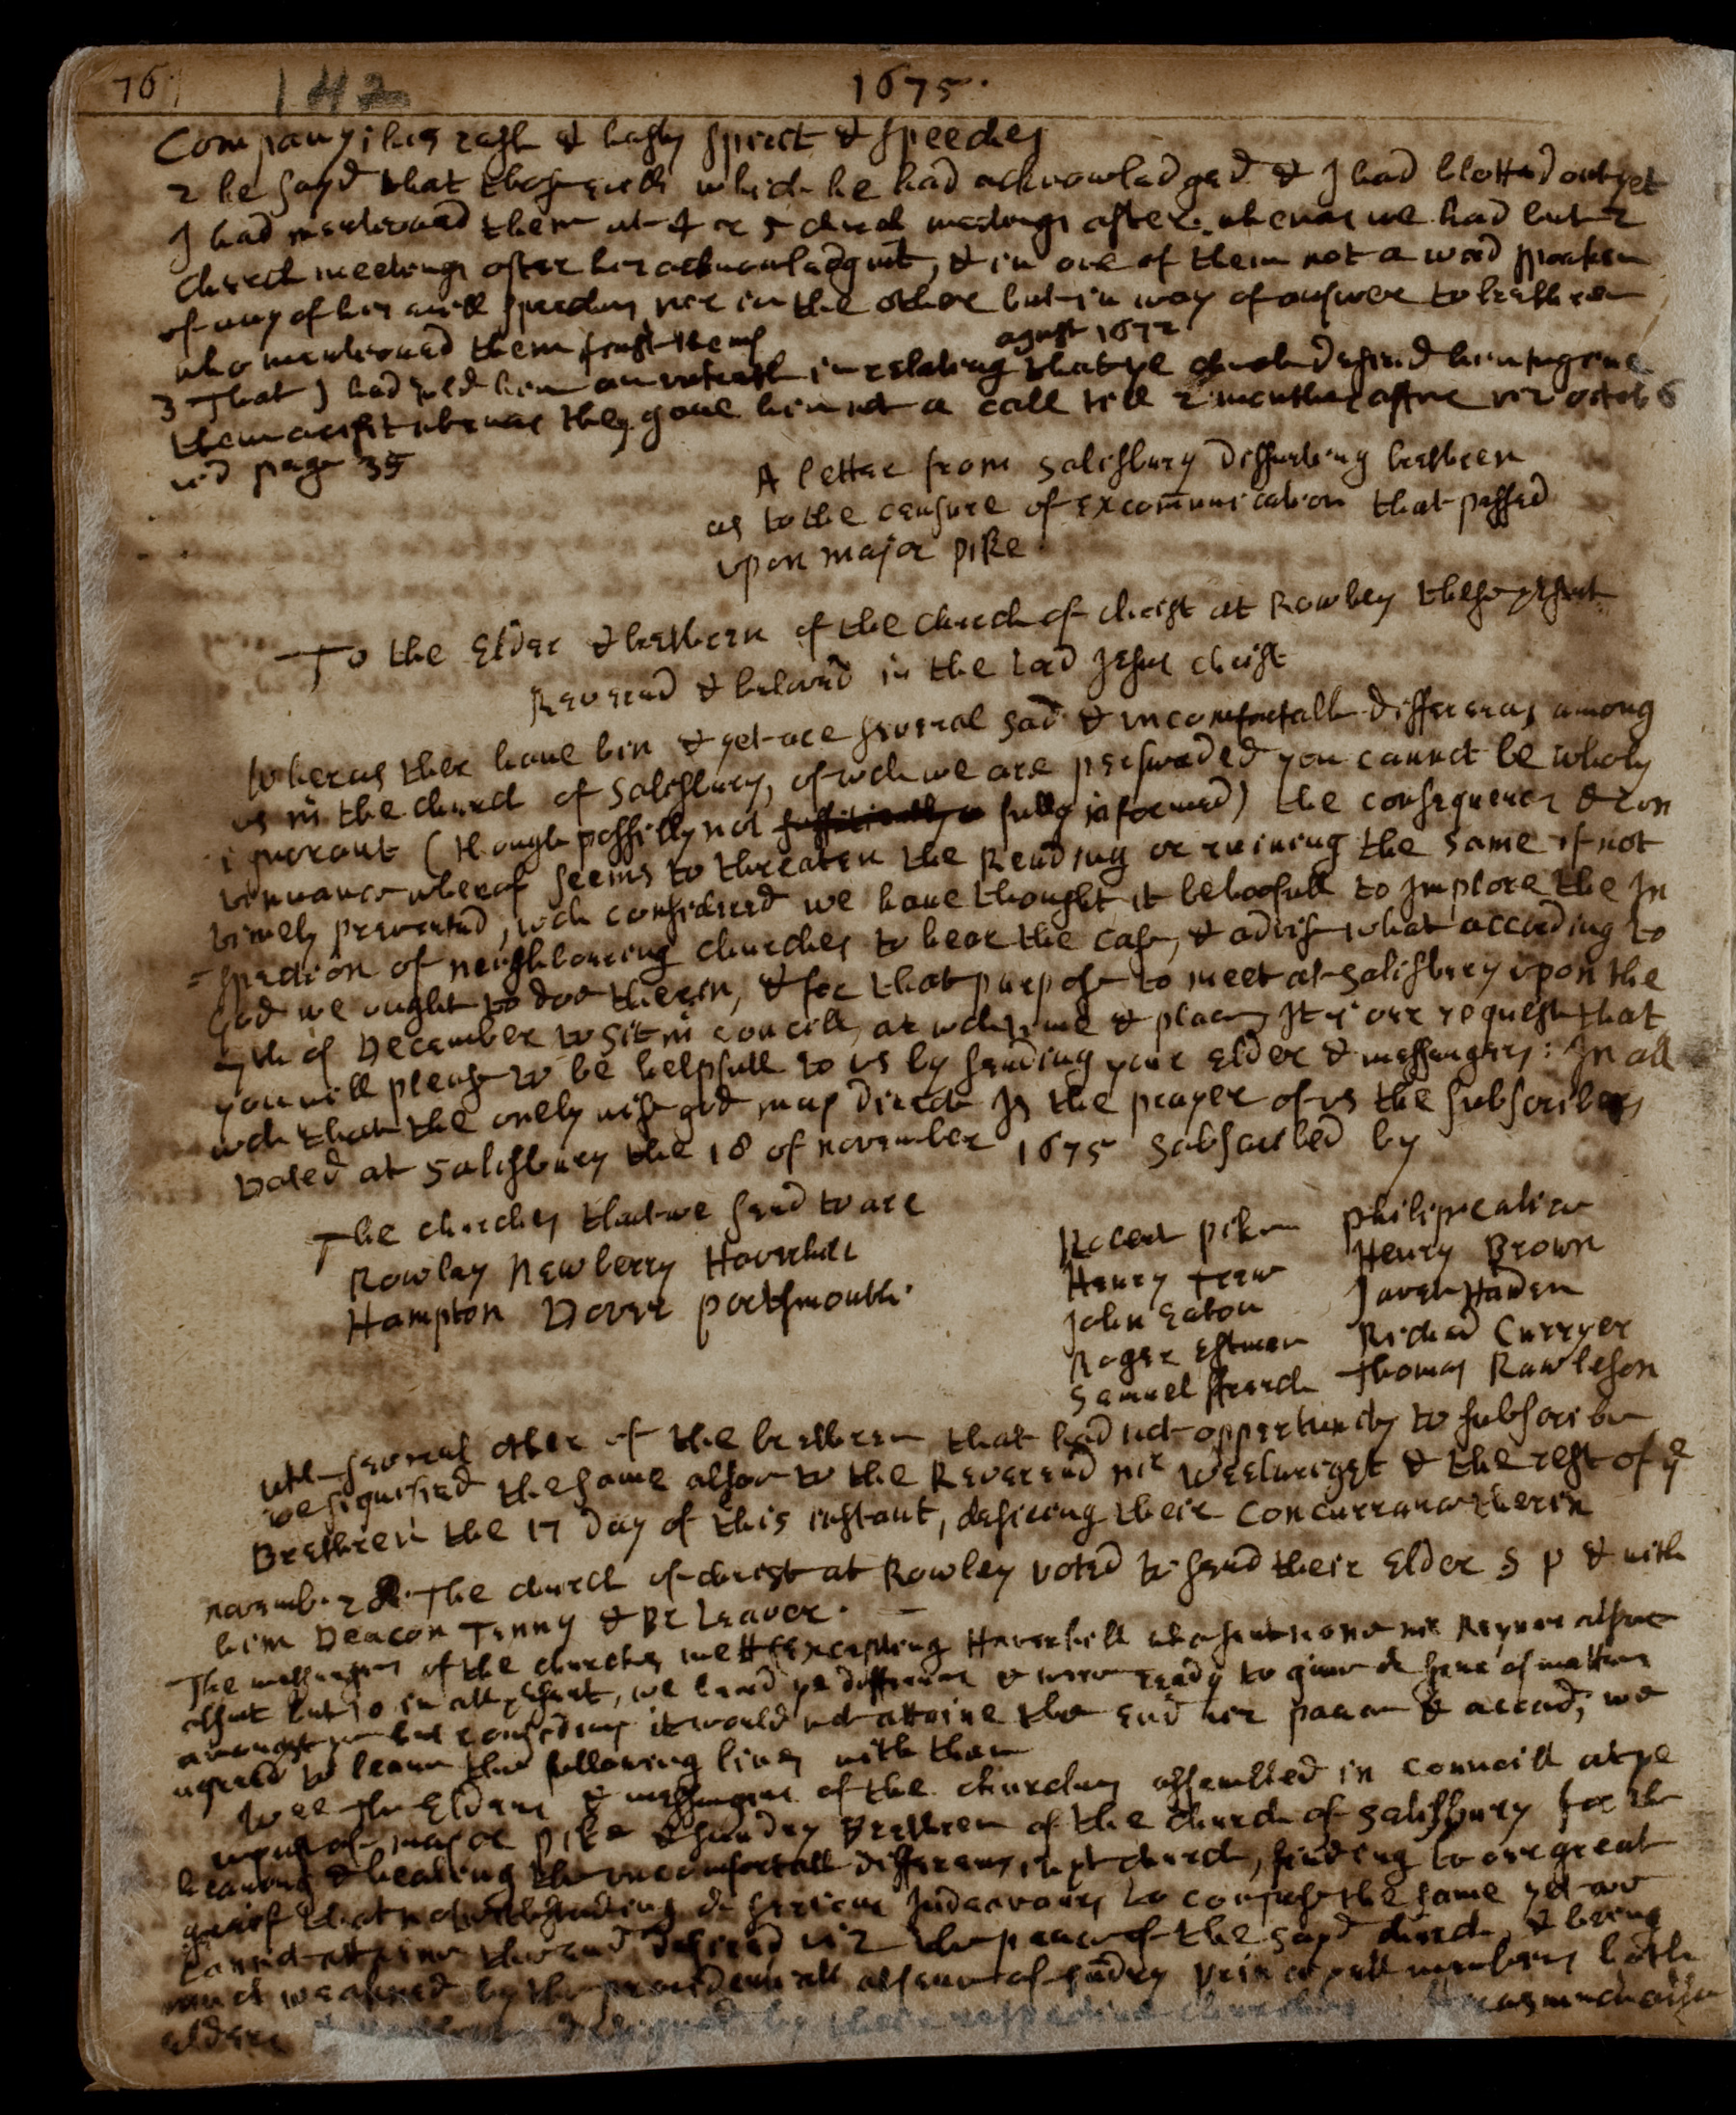 76 142 1675.
Company; his rash & hasty spirit & speeches
2 he sayd that those evills which he had acknowledged & I had blotted out yet
I had mentioned them at 4 or 5 church meetings after. wheras we had but 2
church meetings after his acknowledgmt, & in one of them not a word spoken
of any of his evill speeches, nor in the other but in way of answer to brethren
who mentioned them first
agust 1672
3 That I had told him an untruth in relating that ye church desired him to give
them a visit wheras they gave him not a call till 2 months after viz octob 6
vid page 35
A letter from Salisbury Dissenting brethren
as to the censure of excommunication that passed
upon major pike
To the Elder & brethern of the church of christ at Rowley these present
Reverend & beloved in the lord Jesus christ
Wheras ther haue bin & yet are severall sad & uncomfortable differences among
us in the church of Salisbury, of wch we are perswaded you cannot be wholy
ignorant (though possibly not sufficiently fully informed) the consequence & con
tinuance wherof seems to threaten the Rending or ruining the same if not
timely prevented, wch considered we haue thought it behoofull to Implore the In
=spection of neighbouring churches to hear the case, & advise what according to
God we ought to doe therein, & for that purpose to meet at Salisbury upon the
7th of December to sit in councill, at wch time & place, It is our request that
you will please to be helpfull to us by sending your Elder & messengers: In all
wch that the onely wise god may direct Is the prayer of us the subscribers
Dated at Salisbury the 18 of november 1675 subscribed by
The churches that we send to are
Rowley Newberry Haverhill
Hampton Dover portsmouth.
Robert pike philip
Henry Henry Brown
John Eaton
Roger Estman Richard Curryer
Samuel ffrench Thomas Rawleson
with severall other of the brethren that had not opportunity to subscribe
we signified the same allso to the Reverend mr Weelwriget & the rest of ye
Brethren the 17 Day of this instant, desiring their Concurrance therin
november 28. The church of christ at Rowley voted to send their Elder S P & with
him Deacon Tenny & Br Leaver.
The messengers of the churches mett (excepting Haverhill who sent none mr Reyner allso
absent but 10 in all present, we heard ye differences & were ready to give sense of matters
amongst but considering it would not attaine the end viz peace & accord, we
agreed to leave the following lines with them
Wee the Elders & messengers of the churches assembled in councill at ye
request of major pike & sundry Brethren of the church of Salisbury for the
hearing & healing the uncomfortable differences in yt church, finding to our great
greif that notwithstanding serious Indeavours to compose the same yet we
cannot attaine the end desired viz the peace of the sayd church, & being
much weakned by the providentiall absence of sundry principall members both
elders by their respective churches